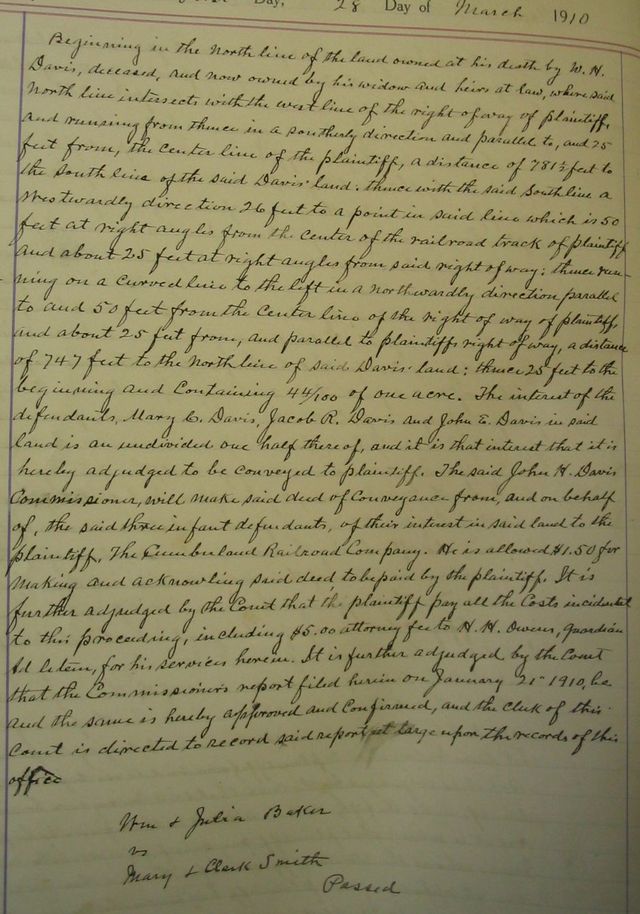 Day, 28 Day of March 1910
Beginning in the North line of the land owned at his death by W. H.
Davis, deceased, and now owned by his widow and heirs at law, where said
North line intersects with the west line of the right of way of plaintiff,
and running from thence in a southerly direction and parallel to, and 25
feet from, the center line of the plaintiff, a distance of 781½ feet to
the South line of the said Davis' land: thence with the said South line a
Westwardly direction 26 feet to a point in said line which is 50
feet at right angles from the center of the railroad track of plaintiff
and about 25 feet at right angles from said right of way; thence run-
ning on a curved line to the left in a northwardly direction parallel
to and 50 feet from the center line of the right of way of plaintiff,
and about 25 feet from, and parallel to plaintiffs right of way, a distance
of 747 feet to the North line of said Davis' land; thence 25 feet to the
beginning and Containing 44/100 of one acre. The interest of the
defendants, Mary C. Davis, Jacob R. Davis and John E. Davis in said
land is an undivided one half thereof, and it is that interest that it is
hereby adjudged to be conveyed to plaintiff. The said John H. Davis
Commissioner, will make said deed of Conveyance from, and on behalf
of, the said three infant defendants, of their interest in said land to the
plaintiff, The Cumberland Railroad Company. He is allowed $1.50 for
making and acknowling said deed to be paid by the plaintiff. It is
further adjudged by the Court that the plaintiff pay all the Costs incidental
to this proceeding, including $5.00 attorney fee to H. H. Owens, guardian
Ad litem, for his services herein. It is further adjudged by the Court
that the Commissioners report filed herein on January 21st 1910, be
and the same is hereby approved and Confirmed, and the clerk of this
Court is directed to record said report at large upon the records of this
office
Wm & Julia Baker
vs
Mary & Clark Smith
Passed